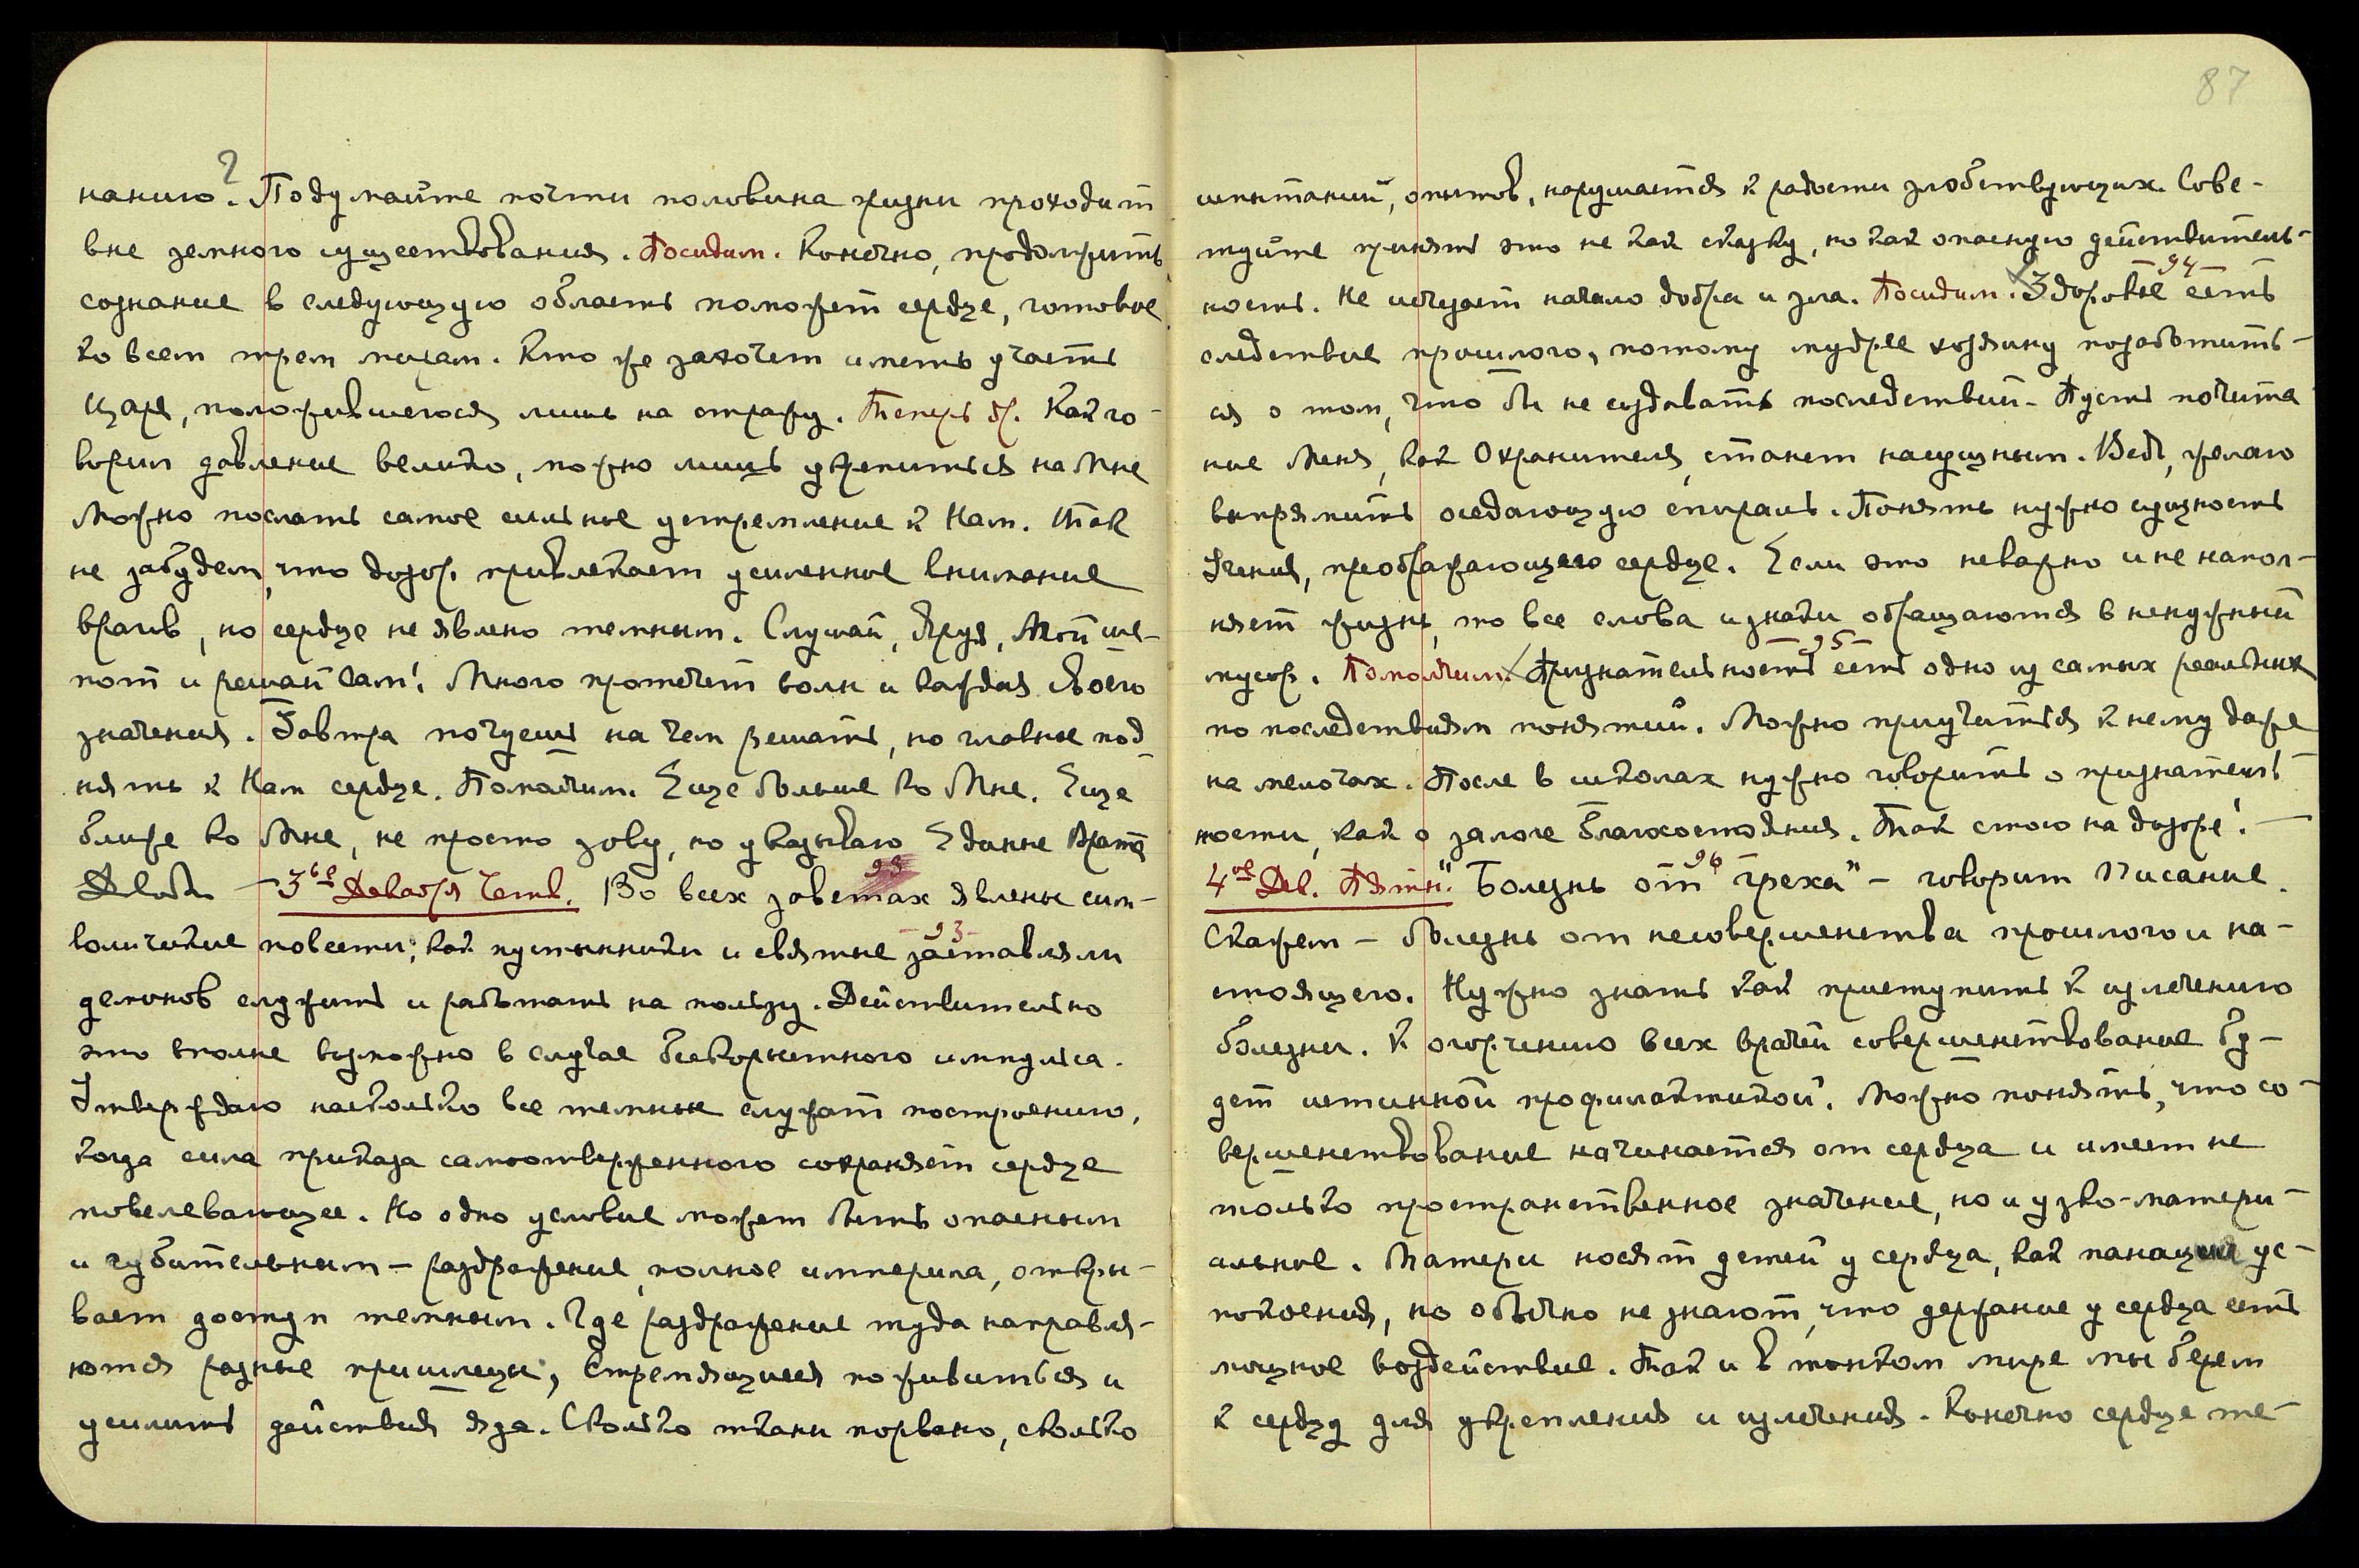 нанию? Подумайте почти половина жизни проходит
вне земного существования. Посидим. Конечно, продолжить
сознание в следующую область поможет сердце, готовое
ко всем трем мирам. Кто же захочет иметь участь
царя, положившегося лишь на стражу. Теперь др. Как го-
ворил давление велико, можно лишь укрепиться на Мне
Можно послать самое сильное устремление к Нам. Так
не забудем, что дозор привлекает усиленное внимание
врагов, но сердце не явлено темным. Слушай, Яруя, Мой ше-
пот и решай Сам! Много протечет волн и каждая своего
значения. Завтра почуешь на чем решать, но главное под-
нять к Нам сердце. Помолчим. Еще больше ко Мне. Еще
ближе ко Мне, не просто зову, но указываю Единые Врата
3ье Декабря Четв. 93 Во всех заветах явлены сим-
волические повести, как пустынники и святые заставляли
-93-
демонов служить и работать на пользу. Действительно
это вполне возможно в случае бескорыстного импульса.
Утверждаю насколько все темные служат построению,
когда сила приказа самоотверженного сохраняет сердце
повелевающее. Но одно условие может быть опасным
и губительным – раздражение, полное империла, откры-
вает доступ темным. Где раздражение туда направля-
ются разные пришлецы, стремящиеся поживиться и
усилить действия яда. Сколько ткани порвано, сколько
87
испытаний, опытов, нарушается к радости злобствующих. Сове-
туйте принять это не как сказку, но как опасную действитель-
ность. Не исчезает начало добра и зла. Посидим. -94- Здоровье есть
следствие прошлого, потому мудрее хозяину позаботить-
ся о том, что бы не создавать последствий. Пусть почита
ние Меня, как Охранителя, станет насущным. Ведь, желаю
выпрямить оседающую спираль. Понять нужно сущность
Учения, преображающего сердце. Если это неважно и не напол-
няет жизнь, то все слова и знаки обращаются в ненужный
мусор. Помолчим. -95- Признательность есть одно из самых реальных
по последствиям понятий. Можно приучиться к нему даже
на мелочах. После в школах нужно говорить о признатель-
ности, как о залоге благосостояния. Так стою на дозоре! –
4ое Дек. Пятн. -96- "Болезнь от греха" – говорит Писание.
Скажем – болезнь от несовершенства прошлого и на-
стоящего. Нужно знать как приступить к излечению
болезни. К огорчению всех врачей совершенствование бу-
дет истинной профилактикой. Можно понять, что со-
вершенствование начинается от сердца и имеет не
только пространственное значение, но и узко-матери-
альное. Матери носят детей у сердца, как панацею ус-
покоения, но обычно не знают, что держание у сердца есть
мощное воздействие. Так и в тонком мире мы берем
к сердцу для укрепления и излечения. Конечно сердце те-